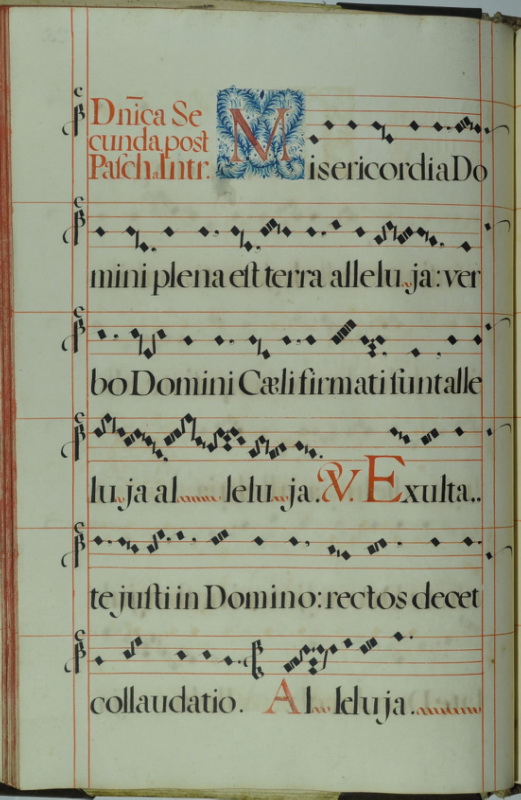 Dn̄ica Se
cunda post
Pasch. Intr.
Misericordia Do
mini plena eſt terra allelu ja: ver
bo Domini Cæli firmati ſunt alle
lu ja al lelu ja. V. Exulta..
te juſti in Domino: rectos decet
collaudatio. Al leluja.